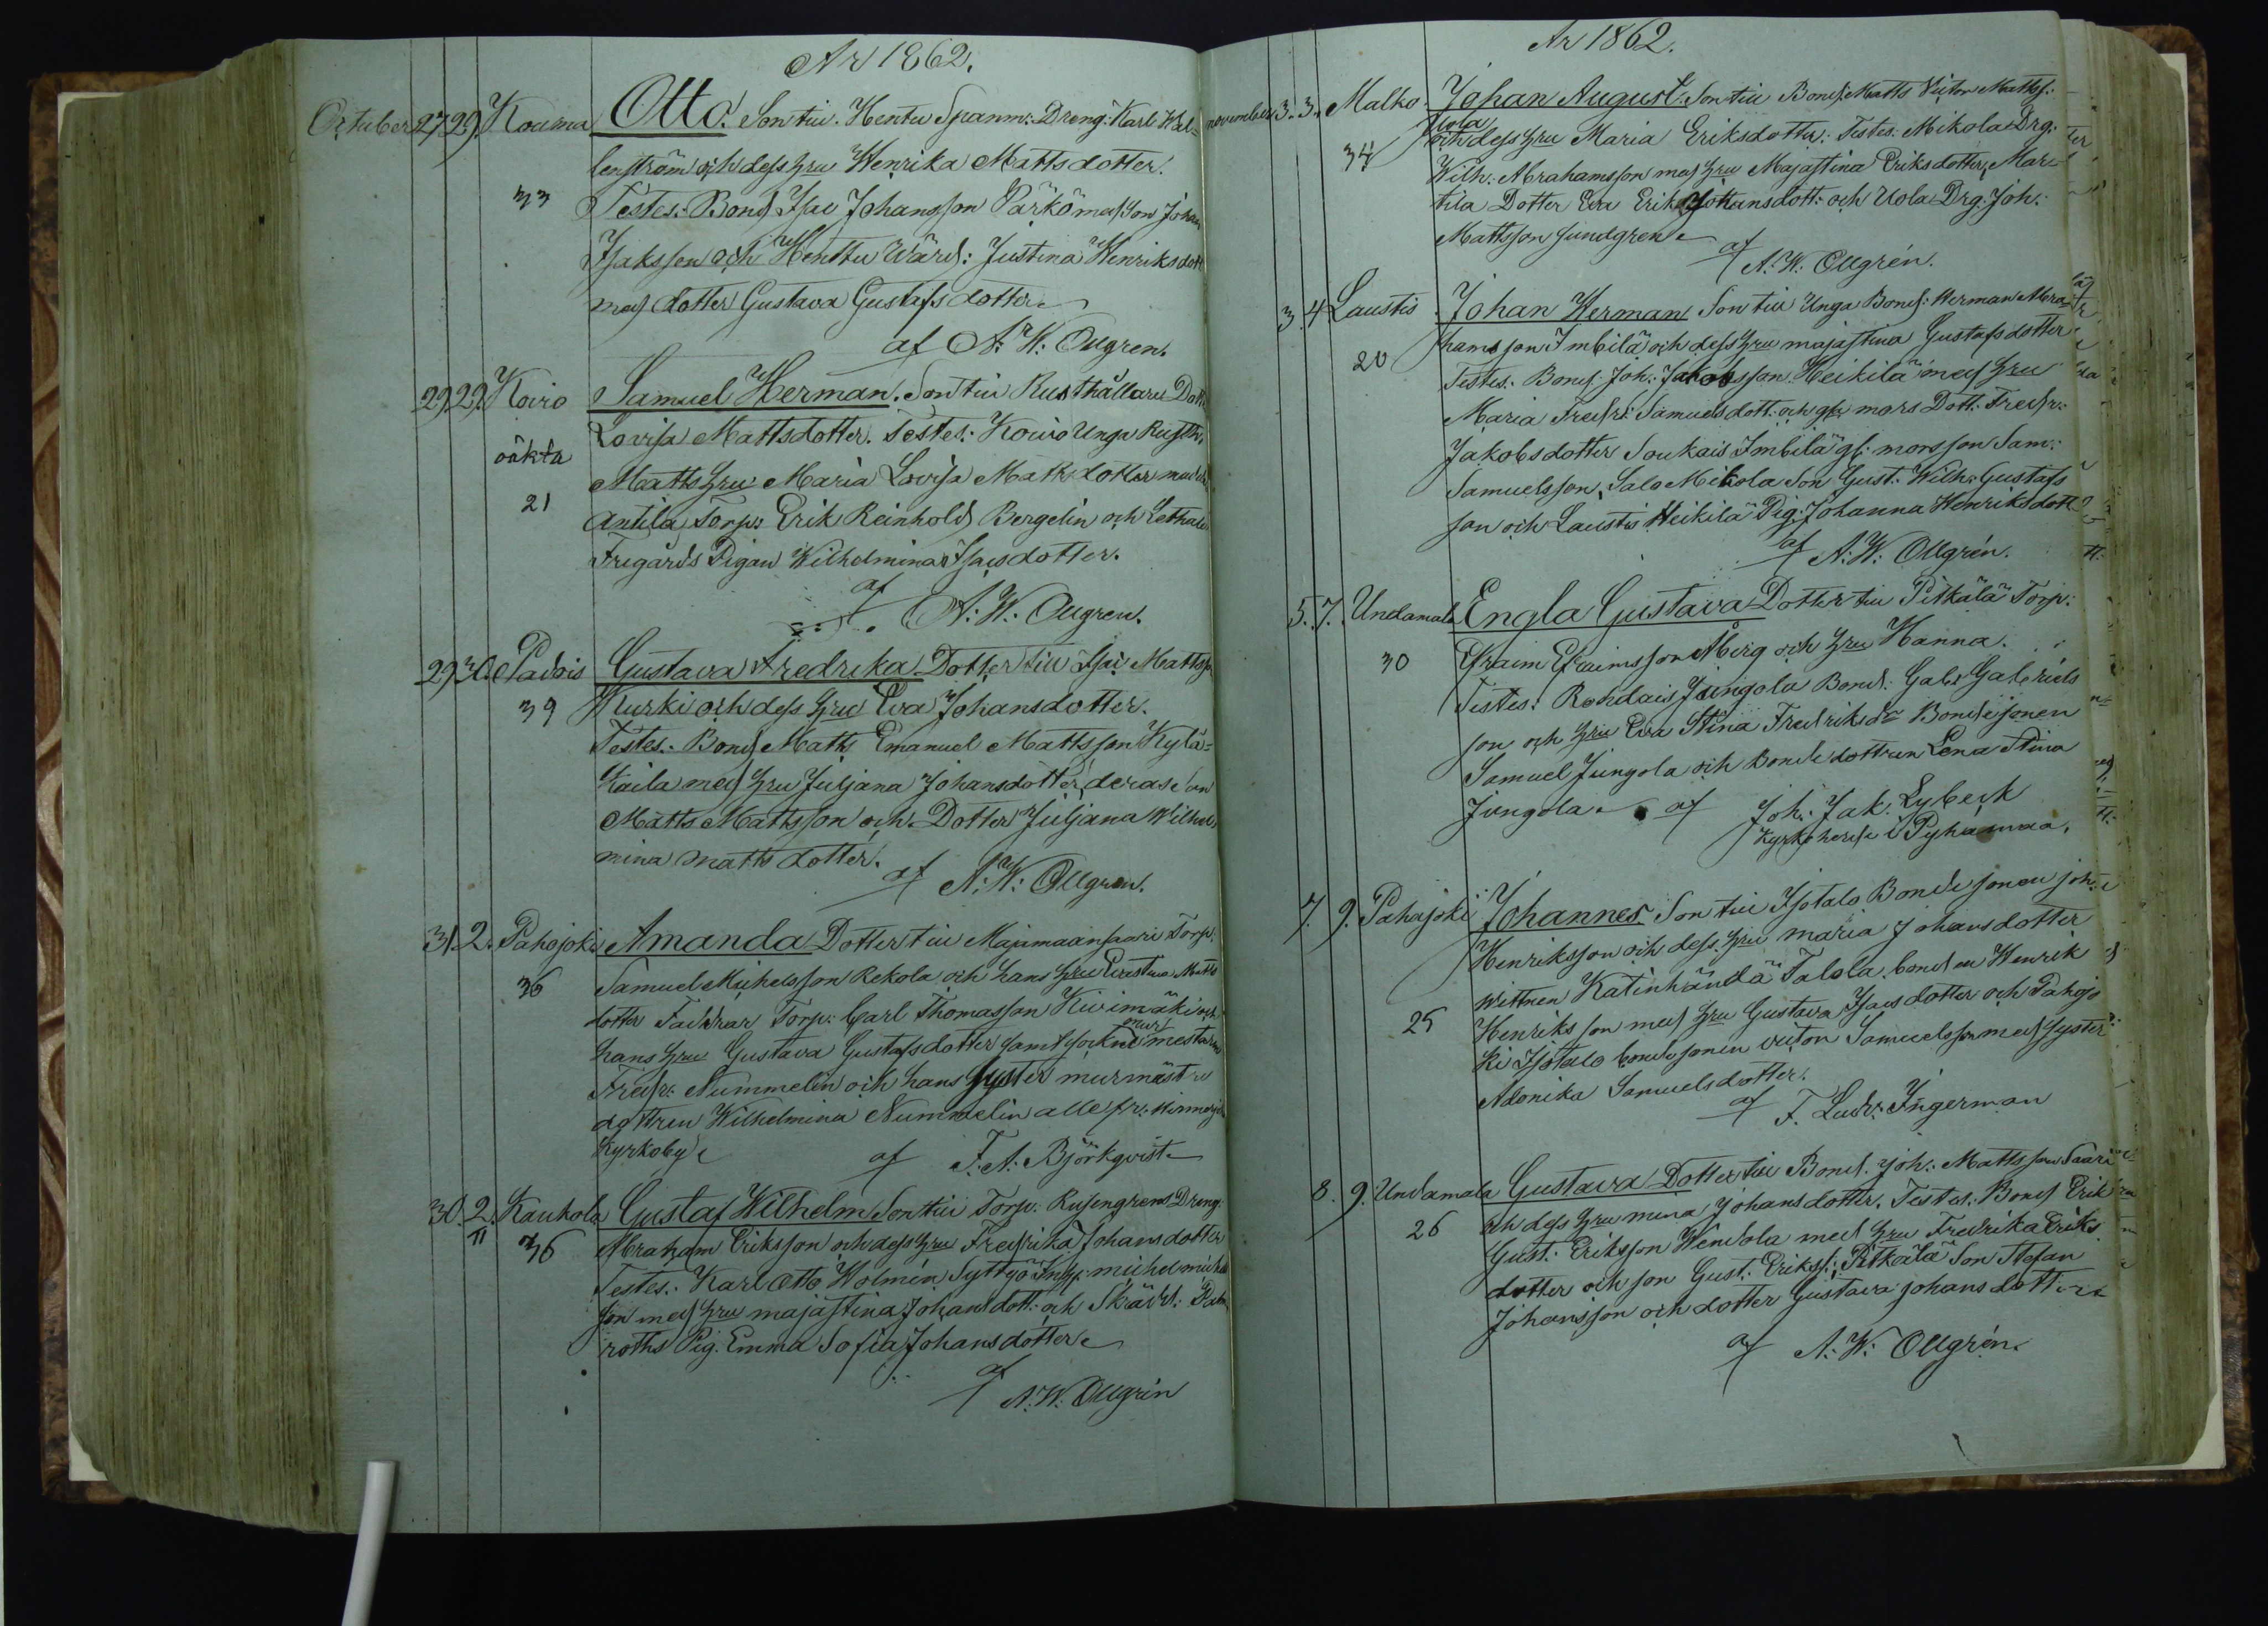 År 1862.
October 27. 29. Kouma Otto. Son till Hentu Spanm: Dreng: Karl Häl-
lenström och dess hru Henrika Mattsdotter.
33 Testes: Bond Isac Johansson Pärkö med son Johan
Isaksson och Henttu Värd: Justina Henriksdott
med dotter Gustava Gustafsdotter
af A: W: Ollgren.
29. 29. Koivo Samuel Herman. Son till Rusthållare Dott:
Lovisa Mattsdotter. Testes: Koivo Unga Rusth:
oäkta Matts hru Maria Lovisa Mattsdotter med
21 Antila Torp: Erik Reinhold Bergelin och
Fregårds Pigan Wilhelmina Isacsdotter.
af
A: W: Ollgren.
29 30. Padois Gustava Fredrika Dotter till Isac Mattsson
39 Kurki och dess hru Eva Johansdotter.
Testes: Bond Matts Emanuel Mattsson Kylä-
Kaila med hru Juljana Johansdotter, deras son
Matts Mattsson och Dotter Juljana Wilhel
mina Matts dotter.
af A: W: Ollgren.
31. 2. Pahojoki Amanda Dotter till Majamaansaari Torp:
36 Samuel Michelsson Rekola och hans hru Evastina Matts
dotter Faddrar Torp: Carl Thomasson Kivimäki och
hans hru Gustava Gustafsdotter samt sockne mur mestaren
Fredr: Nummelin och hans syster murmästare
dottren Wilhelmina Nummelin alle fr: Hinnerjoki
Kyrkoby
af F. A: Björkqvist
30. 2. Kaukola Gustaf Wilhelm Son till Torp: Rusengrens Dreng:
11 36 Abraham Eriksson och dess hru Fredrika Johansdotter
Testes: Karl Otto Holmén Syttyö Insp: michel michels
son med hru majastina Johansdott: och Skrädd: Palm
roths Pig: Emma Sofia Johansdotter
af
A. W. Ollgrén
År 1862.
november 3. 3. Malko Johan August. Son till Bond: Matts Victor Mattss:
Uola
34 och dess hru Maria Eriksdotter. Testes: Mikola Drg:
Wilh: Abrahamsson med hru Majastina Eriksdotter, Mar-
tila Dotter Eva Erika Johansdott: och Uola Drg: Joh:
Mattsson Sundgren
af
A: W: Ollgrén.
3. 4 Laustis Johan Herman Son till Unga Bond: Herman Abra-
20 hamsson Imbilä och dess hru majastina Gustafsdotter
Testes: Bond: Joh: Jakobsson Heikilä med hru
Maria Fredri: Samuelsdott: och gf: mors Dott: Fredr:
Jakobsdotter Soukais Imbilä gf: morsson Sam:
Samuelsson, Salo Mikola Son Gust: Wilh: Gustafs
son och Laustis Heikilä Pig: Johanna Henriksdott
af
A: W: Ollgrén.
5. 7. Undamala Engla Gustava Dotter till Pitkälä Torp:
30 Efraim Efraimsson Åberg och hru Hanna.
Testes: Rohdais Jungola Bond: Gab: Gabriels
son och hru Eva Stina Fredriksdr Bondesonen
Samuel Jungola och bonde dottren Lena Stina
Jungola. af Joh: Jak: Lybeck
Kyrkoherde i Pyhämaa.
7. 9. Pahajoki Johannes Son till Isotalo Bondesonen joh:
Henriksson och dess hru maria Johansdotter
Wittnen Katinhändä Talola bonden Henrik
25 Henriksson med hru Gustava Isacsdotter och Pahajo
ki Isotalo bondesonen victor Samuelsson med syster
Adonika Samuelsdotter.
af F. Ludv: Ingerman
8. 9. Undamala Gustava Dotter till Bond: joh: Mattsson Saari
26 och dess hru mina Johansdotter. Testes: Bond Erik
Gust: Eriksson Wendola med hru Fredrika Eriks
dotter och son Gust: Erikss: Pitkälä Son Stefan
Johansson och dotter Gustava johans dotter
af A: W: Ollgrén.